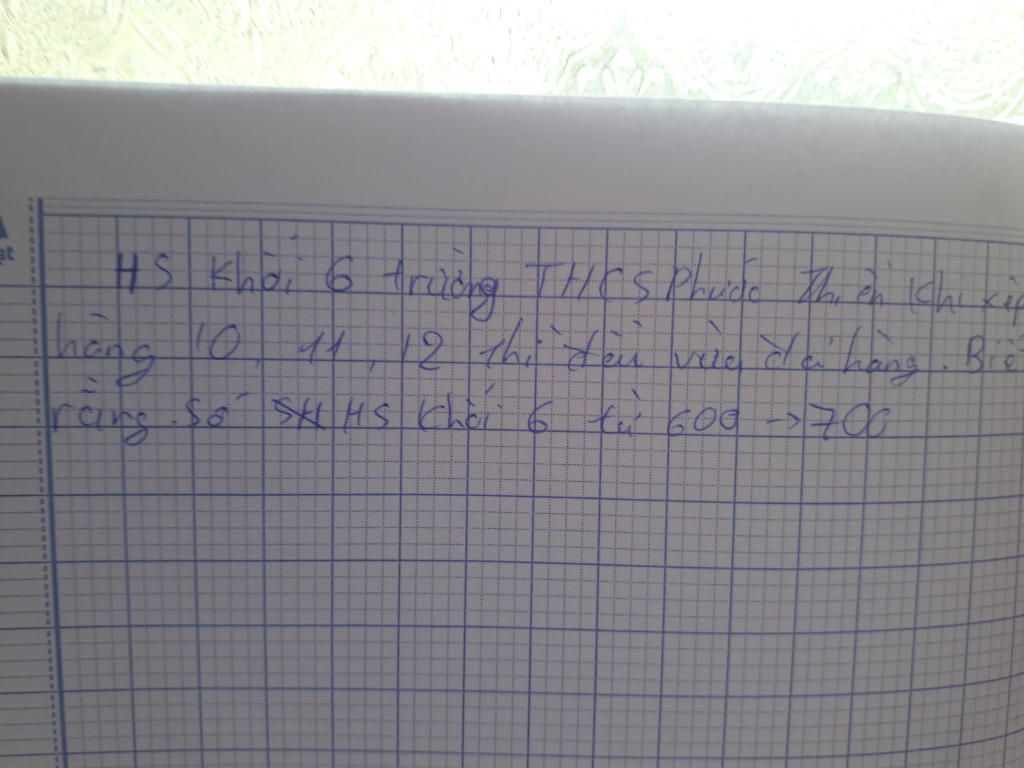 HS Khối 6 trường THCS Phước Thiền khi xếp
hàng 10, 11, 12 thì đều vừa đủ hàng. Biế
rằng số HS khối 6 từ 600 → 700